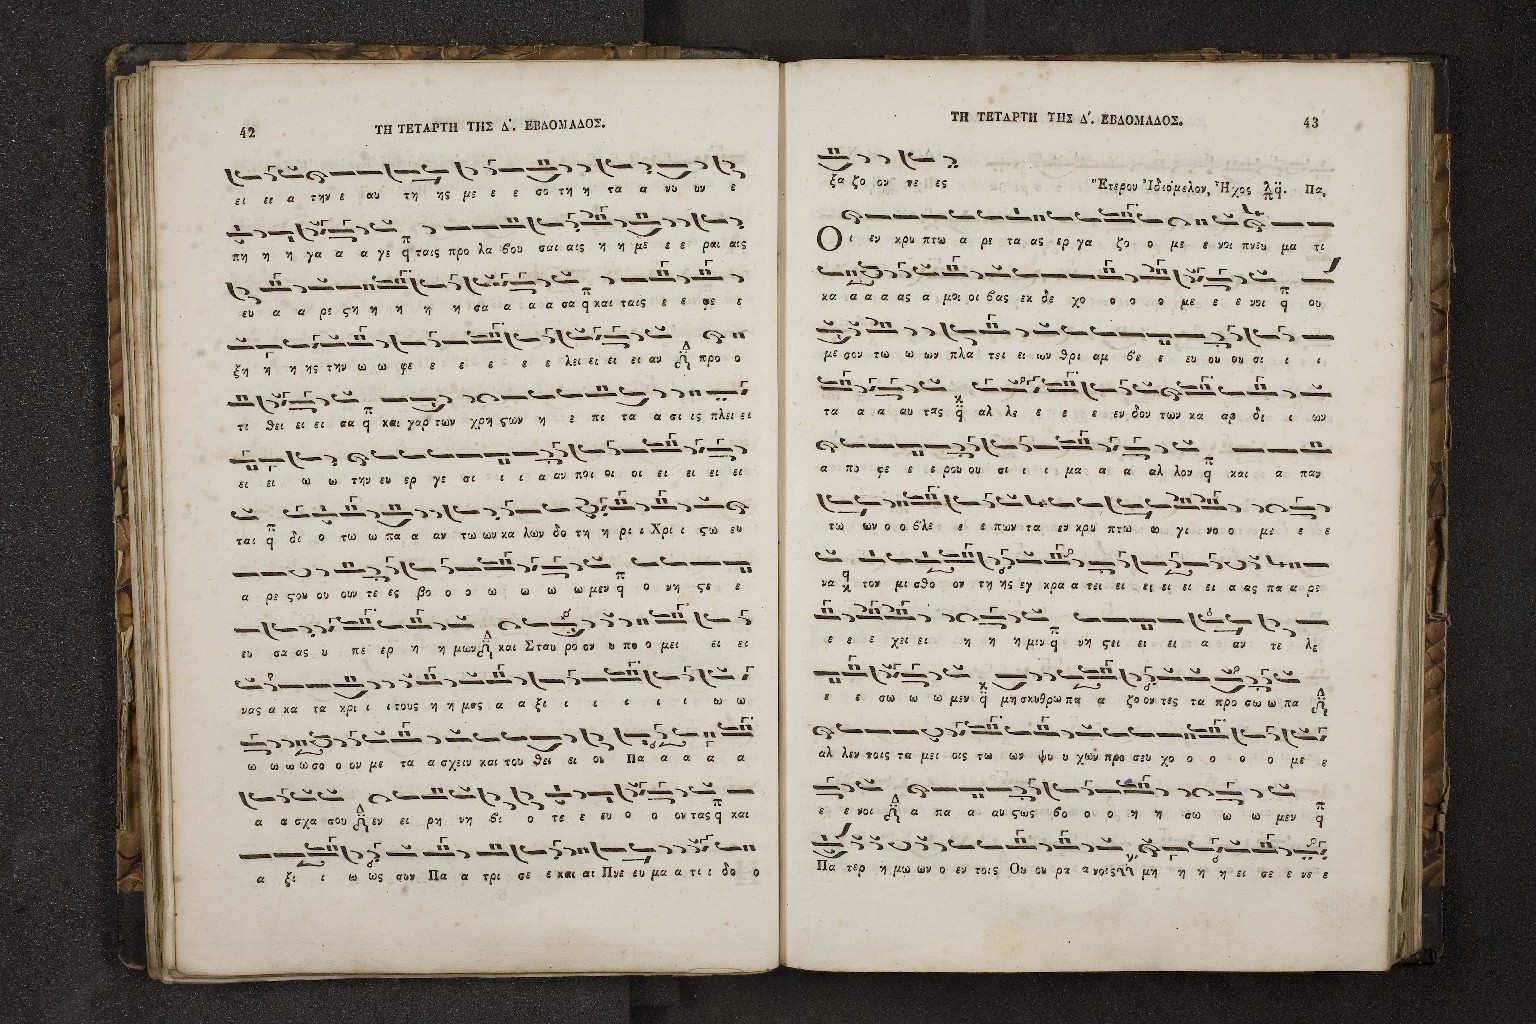 42
ΤΗ ΤΕΤΑΡΤΗ ΤΗΣ Δ΄. ΕΒΔΟΜΑΔΟΣ.
ει ει α την ε αυ τη ης με ε ε σο τη η τα α νυ υν ε
πη η η γα α α γε ταις προ λα βου σαι αις η η με ε ε ραι αις
ευ α α ρε ςη η η η η η σα α α α σα και ταις ε ε φε ε
ξη η η ης την ω ω φε ε ε ε ε ε λει ει ει ει αν προ ο
τι θει ει ει ει σα και γαρ των χρη ςων η ε πι τα α σι ις πλει ει
ει ει ω ω την ευ ερ γε σι ι ι α αν ποι οι οι ει ει ει ει
ται δι ο τω ω πα α αν τω ων κα λων δο τη η ρι ι Χρι ι ςω ευ
α ρε ςου ου ουν τε ες βο ο ο ω ω ω ω μεν ο νη ςε ε
ευ σα ας υ πε ερ η η μων και Σταυ ρο ον υ πο ο μει ει ει
νας α κα τα κρι ι ι τους η η μας α α ξι ι ι ι ι ι ω ω
ω ω ω ω σο ο ον με τα α σχειν και του θει ει ου Πα α α α α
α α σχα σου εν ει ρη νη βι ο τε ε ευ ο ο ον τας και
α ξι ι ω ως συν Πα α τρι σε ε και αι Πνε ευ μα α τι ι δο ο
ΤΗ ΤΕΤΑΡΤΗ ΤΗΣ Δ΄. ΕΒΔΟΜΑΔΟΣ.
43
ξα ζο ον τε ες
Ἕτερον Ἰδιόμελον, Ἦχος Πα.
Ο ι εν κρυ πτω α ρε τα ας ερ γα ζο ο με ε νοι πνευ μα τι
κα α α α ας α μοι οι βας εκ δε χο ο ο ο με ε ε νοι ου
με σον τω ω ων πλα τει ει ων θρι αμ βε ε ευ ου ου σι ι ι
τα α α αυ τας αλ λε ε ε ε εν δον των κα αρ δι ι ων
α πο φε ε ε ρου ου σι ι ι μα α α αλ λον και α παν
τω ων ο ο βλε ε ε πων τα εν κρυ πτω ω γι νο ο με ε ε
να τον μι σθο ον τη ης εγ κρα α τει ει ει ει ει ει α ας πα α ρε
ε ε ε χει ει η η η μιν νη ςει ει ει α αν τε λε
ε ε σω ω ω μεν μη σκυθρω πα α ζο ον τες τα προ σω ω πα
αλ λεν τοις τα μει οις τω ων ψυ υ χων προ σευ χο ο ο ο ο με ε
ε ε νοι α πα α αυ ςως βο ο ο η η σω ω ω μεν
Πα τερ η μω ων ο εν τοις Ου ου ρα α νοις μη η η η ει σε ε νε ε